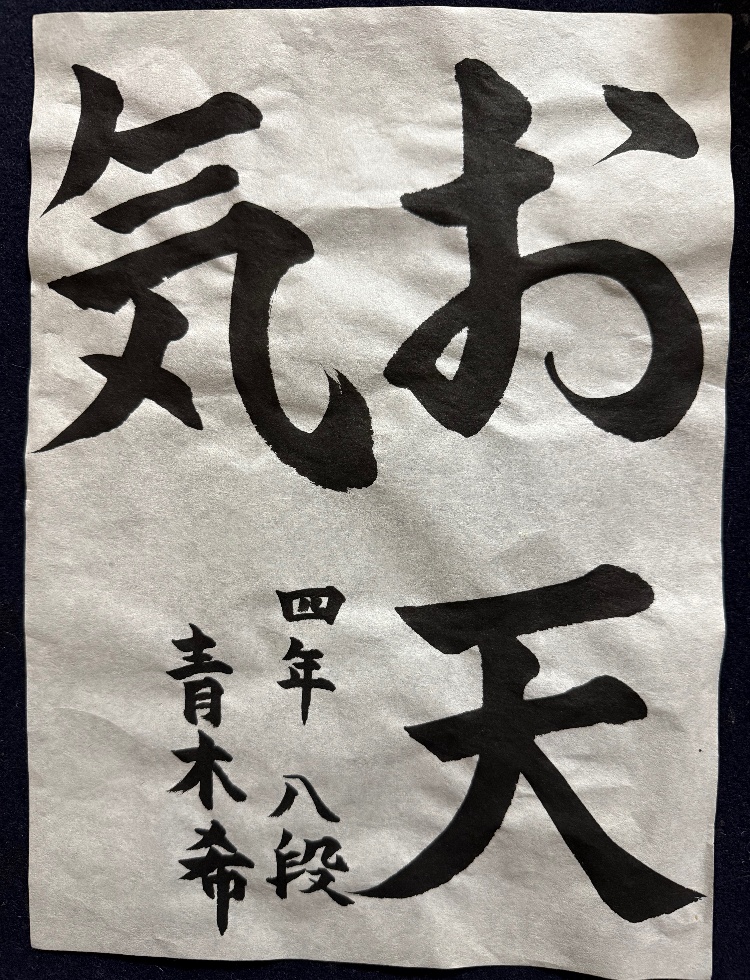 お天
気
四年 八段
青木希